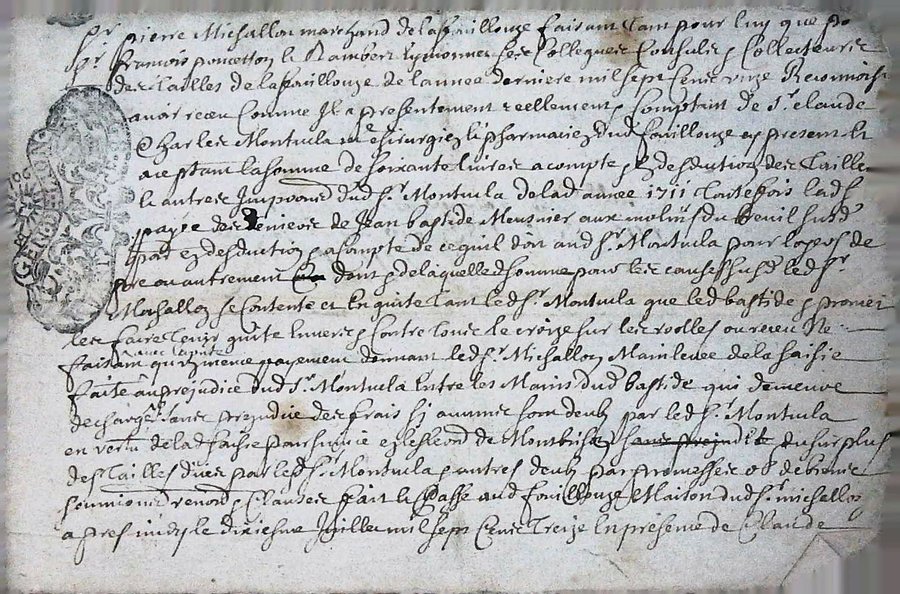 Sr pierre Michallon marchand de la fouillouze faisant tant pour luy que po
Sr francois poncetton Rambert ses Collegues Consuls & Collecteurs
des tailles de la fouillouze de lannee derniere mil sept cens unze Reconnoist
avoir receu Comme Il a presentement reellement & Comptant de Sr claude
Charles Montula me chirurgien & pharmacien dud fouillouze cy present &
aceptant la somme de soixante livres a compte & en desduction des Taille
& autres Impositions dud Sr Montula de lad annee 1711 toutesfois lad s
payée des deniers de Jean bastide Meusnier aux molins du breuil sur &
par en desduction & a Compte de ce quil doit aud Sr Montula pour
ou autrement dont & de laquelle d somme pour les causes susd led Sr
Michallon se Contente et En quite tant led Sr Montula que led bastide & promet
les faire tenir quite Envers & Contre tous le croise sur les roolles ou receu Ne
faisant qu un meme payement donnant led Sr Michallon Mainlevee de la saisie
faite au prejudice dud Sr Montula Entre les Mains dud bastide qui demeure
decharge sans prejudice des frais si aucuns sont deub par led Sr Montula
en vertu de lad saisie en leslection de Montbrison sans prejudice du surplus
des Tailles dues par led Sr Montula & autres deub par promesses obligé
soumis renond & Clauses fait & Passé aud fouillouze Maison dud Sr michallon
apres midy le dixiesme Juillet mil sept Cens Treize En presence de Claude